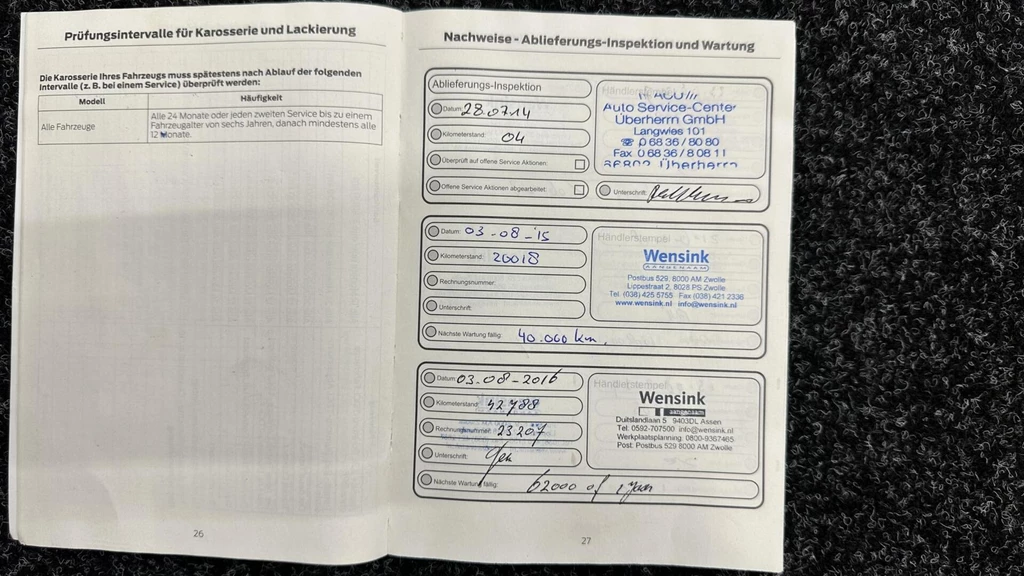 Prüfungsintervalle für Karosserie und Lackierung
Die Karosserie Ihres Fahrzeugs muss spätestens nach Ablauf der folgenden
Intervalle (z. B. bei einem Service) überprüft werden:
Modell Häufigkeit
Alle Fahrzeuge
Alle 24 Monate oder jeden zweiten Service bis zu einem
Fahrzeugalter von sechs Jahren, danach mindestens alle
12 Monate.
26
Nachweise - Ablieferungs-Inspektion und Wartung
Ablieferungs-Inspektion
Datum: 28.07.14
Kilometerstand: 04
Überprüft auf offene Service Aktionen:
Offene Service Aktionen abgearbeitet:
Auto Service-Center
Überherrn GmbH
Langwies 101
☎ 0 68 36 / 80 80
Fax 0 68 36 / 8 08 11
Überherrn
Unterschrift:
Datum: 03-08-'15
Kilometerstand: 20018
Rechnungsnummer:
Unterschrift:
Nächste Wartung fällig: 40.000 km.
Händlerstempel
Wensink
AANGENAAM
Postbus 529, 8000 AM Zwolle
Lippestraat 2, 8028 PS Zwolle
Tel. (038) 425 5755 Fax (038) 421 2336
www.wensink.nl info@wensink.nl
Datum: 03-08-2016
Kilometerstand: 42788
Rechnungsnummer: 23207
Unterschrift:
Nächste Wartung fällig: 62000 of 1 jaar
Händlerstempel
Wensink
aangenaam
Duitslandlaan 5 9403DL Assen
Tel: 0592-707500 info@wensink.nl
Werkplaatsplanning: 0800-9367465
Post: Postbus 529 8000 AM Zwolle
27